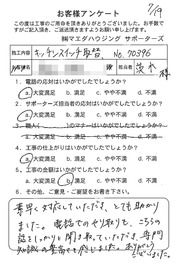 7/19
お客様アンケート
この度は工事のご用命を頂きありがとうございました。お手数で
すがご記入頂き、ご返送頂きますようお願い致します。
㈱マエダハウジング サポーターズ
施工内容 キッチンスイッチ取替 No.70396
担当者 茨木
1. 電話の応対はいかがでしたでしょうか?
a.大変満足 b.満足 c.やや不満 d.不満
2. サポーターズ担当者の応対はいかがでしたでしょうか?
a.大変満足 b.満足 c.やや不満 d.不満
a.大変満足 b.満足 c.やや不満 d.不満
4. 工事の仕上がりはいかがでしたでしょうか?
a.大変満足 b.満足 c.やや不満 d.不満
5. 工事の金額はいかがでしたでしょうか?
a.大変満足 b.満足 c.やや不満 d.不満
6. その他、ご意見・ご要望をお書き下さい。
素早く対応していただき、とても助かり
ました。電話でのやり取りも、こちらの
話をしっかり聞き取っていただき、専門
知識の豊富さを感じました。ありがとう
ございました。